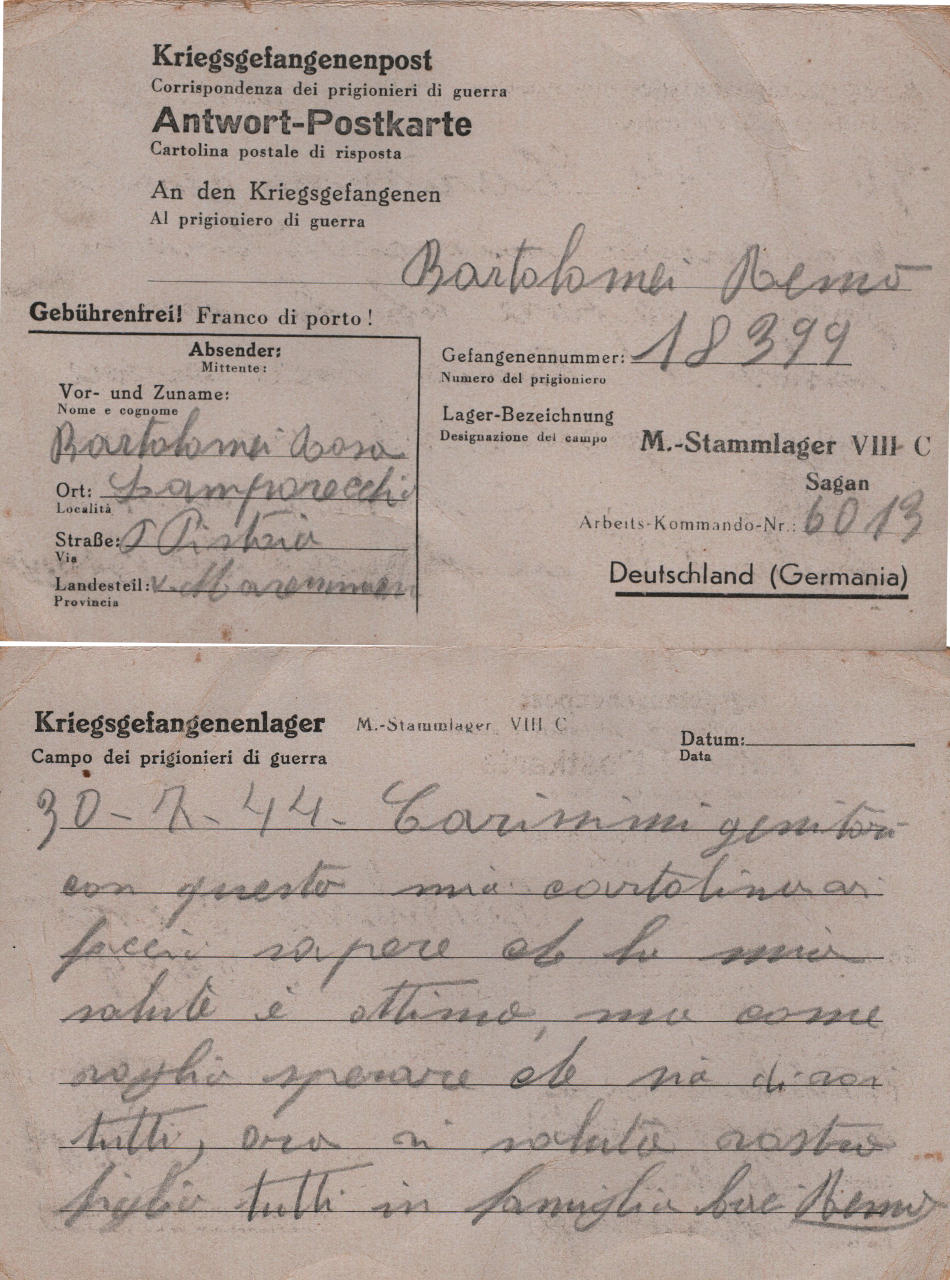 Kriegsgefangenenpost
Corrispondenza dei prigionieri di guerra
Antwort-Postkarte
Cartolina postale di risposta
An den Kriegsgefangenen
Al prigioniero di guerra
Bartolomei Remo
Gebührenfrei! Franco di porto!
Absender:
Mittente:
Vor- und Zuname:
Nome e cognome
Bartolomei Rosa
Ort: Lamporecchio
Località
Straße: P Pistoia
Via
Landesteil: v.
Provincia
Gefangenennummer: 18399
Numero del prigioniero
Lager-Bezeichnung
Designazione del campo
M.-Stammlager VIII C
Sagan
Arbeits-Kommando-Nr.: 6013
Deutschland (Germania)
Kriegsgefangenenlager M.-Stammlager VIII C
Campo dei prigionieri di guerra
Datum:
Data
30-7-44- Carissimi genitori
con questa mia cartolina vi
faccio sapere che la mia
salute è ottima, ma come
voglio sperare che sia di voi
tutti, ora vi saluta vostro
figlio tutti in famiglia baci Remo